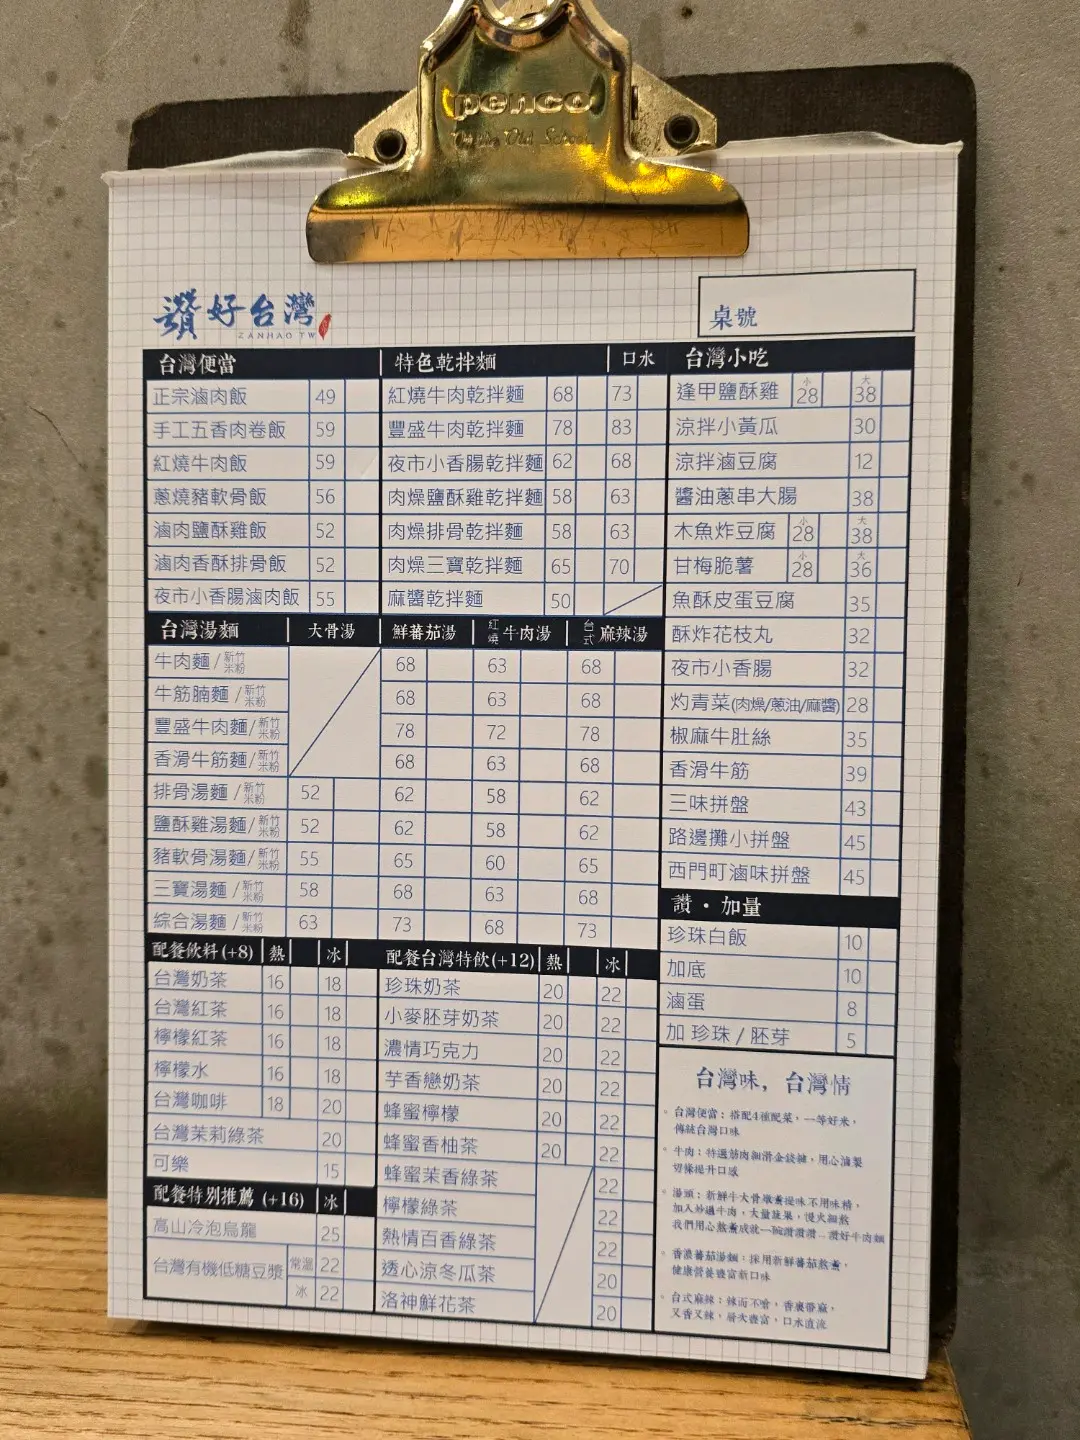 penco
讚好台灣
ZANHAO TW
桌號
台灣便當
正宗滷肉飯 49
手工五香肉卷飯 59
紅燒牛肉飯 59
蔥燒豬軟骨飯 56
滷肉鹽酥雞飯 52
滷肉香酥排骨飯 52
夜市小香腸滷肉飯 55
特色乾拌麵 口水
紅燒牛肉乾拌麵 68 73
豐盛牛肉乾拌麵 78 83
夜市小香腸乾拌麵 62 68
肉燥鹽酥雞乾拌麵 58 63
肉燥排骨乾拌麵 58 63
肉燥三寶乾拌麵 65 70
麻醬乾拌麵 50
台灣湯麵 大骨湯 鮮蕃茄湯 紅燒牛肉湯 台式麻辣湯
牛肉麵/新竹米粉 68 63 68
牛筋腩麵/新竹米粉 68 63 68
豐盛牛肉麵/新竹米粉 78 72 78
香滑牛筋麵/新竹米粉 68 63 68
排骨湯麵/新竹米粉 52 62 58 62
鹽酥雞湯麵/新竹米粉 52 62 58 62
豬軟骨湯麵/新竹米粉 55 65 60 65
三寶湯麵/新竹米粉 58 68 63 68
綜合湯麵/新竹米粉 63 73 68 73
配餐飲料(+8) 熱 冰
台灣奶茶 16 18
台灣紅茶 16 18
檸檬紅茶 16 18
檸檬水 16 18
台灣咖啡 18 20
台灣茉莉綠茶 20
可樂 15
配餐特別推薦 (+16) 冰
高山冷泡烏龍 25
台灣有機低糖豆漿 常溫 22
冰 22
配餐台灣特飲(+12) 熱 冰
珍珠奶茶 20 22
小麥胚芽奶茶 20 22
濃情巧克力 20 22
芋香戀奶茶 20 22
蜂蜜檸檬 20 22
蜂蜜香柚茶 20 22
蜂蜜茉香綠茶 22
檸檬綠茶 22
熱情百香綠茶 22
透心涼冬瓜茶 20
洛神鮮花茶 20
台灣小吃
逢甲鹽酥雞 小28 大38
涼拌小黃瓜 30
涼拌滷豆腐 12
醬油蔥串大腸 38
木魚炸豆腐 小28 大38
甘梅脆薯 小28 大36
魚酥皮蛋豆腐 35
酥炸花枝丸 32
夜市小香腸 32
灼青菜(肉燥/蔥油/麻醬) 28
椒麻牛肚絲 35
香滑牛筋 39
三味拼盤 43
路邊攤小拼盤 45
西門町滷味拼盤 45
讚・加量
珍珠白飯 10
加底 10
滷蛋 8
加 珍珠 / 胚芽 5
台灣味，台灣情
台灣便當：搭配4種配菜，一等好米，
傳統台灣口味
牛肉：特選筋肉細滑金錢腱，用心滷製
切條提升口感
湯頭：新鮮牛大骨燉熬提味不用味精，
加入炒過牛肉，大量蔬果，慢火細熬
我們用心熬燉成就一碗讚讚讚...讚好牛肉麵
香濃蕃茄湯麵：採用新鮮蕃茄熬燉，
健康營養豐富新口味
台式麻辣：辣而不嗆，香裏帶麻，
又香又辣，層次豐富，口水直流